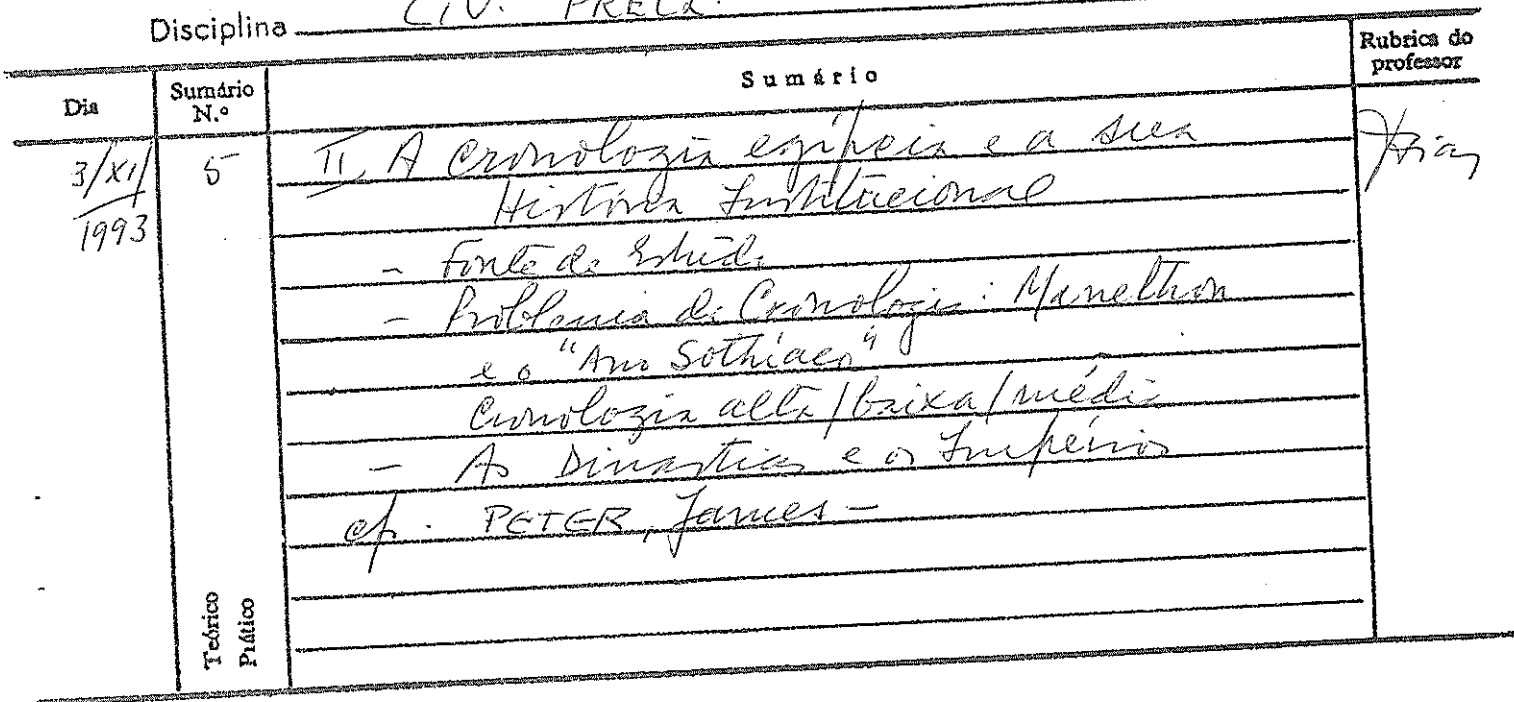 Disciplina CIV. PRECL.
Dia
Sumário N.º
Sumário
Rubrica do professor
3/XI/1993
5
II, A Cronologia egípcia e a sua
História Institucional
- Fonte de Estudo
- Problema da Cronologia: Manethon
e o "Ano Sothíaco"
Cronologia alta/baixa/média
- As Dinastias e os Impérios
cf. PETER, James -
Teórico
Prático